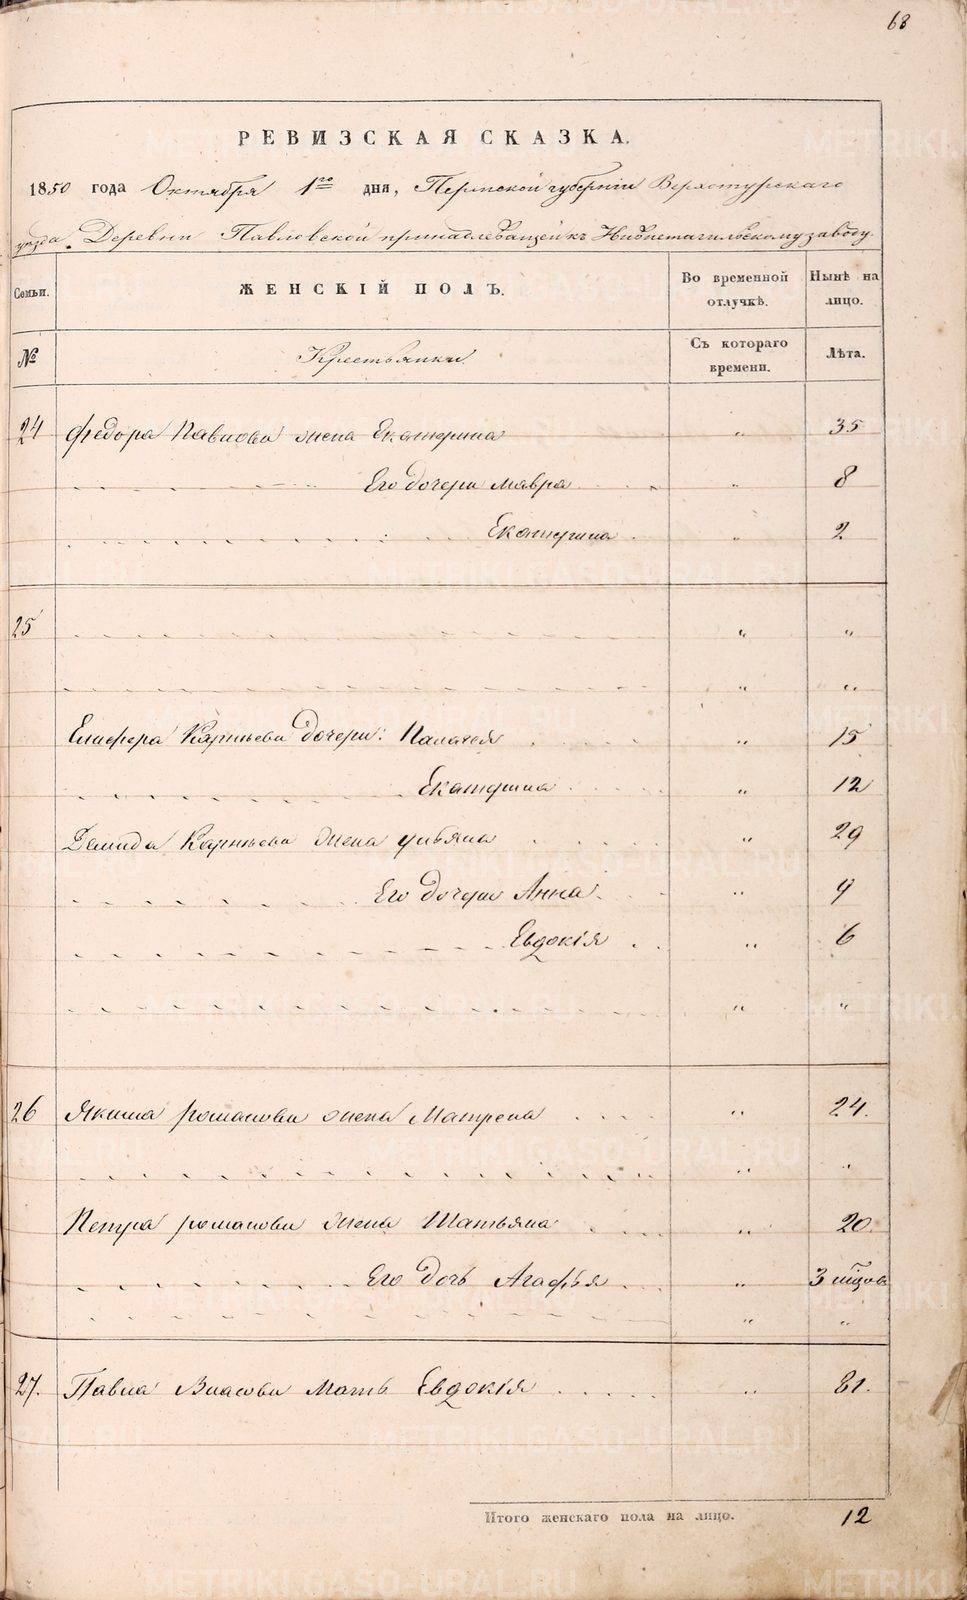 68
РЕВИЗСКАЯ СКАЗКА.
1850 года Октября 1го дня, Пермской губернии Верхотурскаго
уезда. Деревни Павловской принадлежащей къ Нижнетагильскому заводу.
Семьи. ЖЕНСКІЙ ПОЛЪ. Во временной отлучкѣ. Нынѣ на лицо.
№ Крестьянки Съ котораго времени. Лѣта.
24 Федора Павлова жена Екатерина „ 35
Его дочери Мавра „ 8
Екатерина „ 2
25 „ „
„ „
Елисера дочери: Палагея „ 15
Екатерина „ 12
Демида жена Ульяна „ 29
Его дочери Анна „ 9
Евдокія „ 6
„ „
26 Якима Романова жена Матрена „ 24.
„ „
Петра Романова жена Татьяна „ 20.
Его дочь Агафья „ 3
„ „
27. Павла Власова мать Евдокія „ 81.
Итого женскаго пола на лицо. 12
METRIKI.GASO-URAL.RU